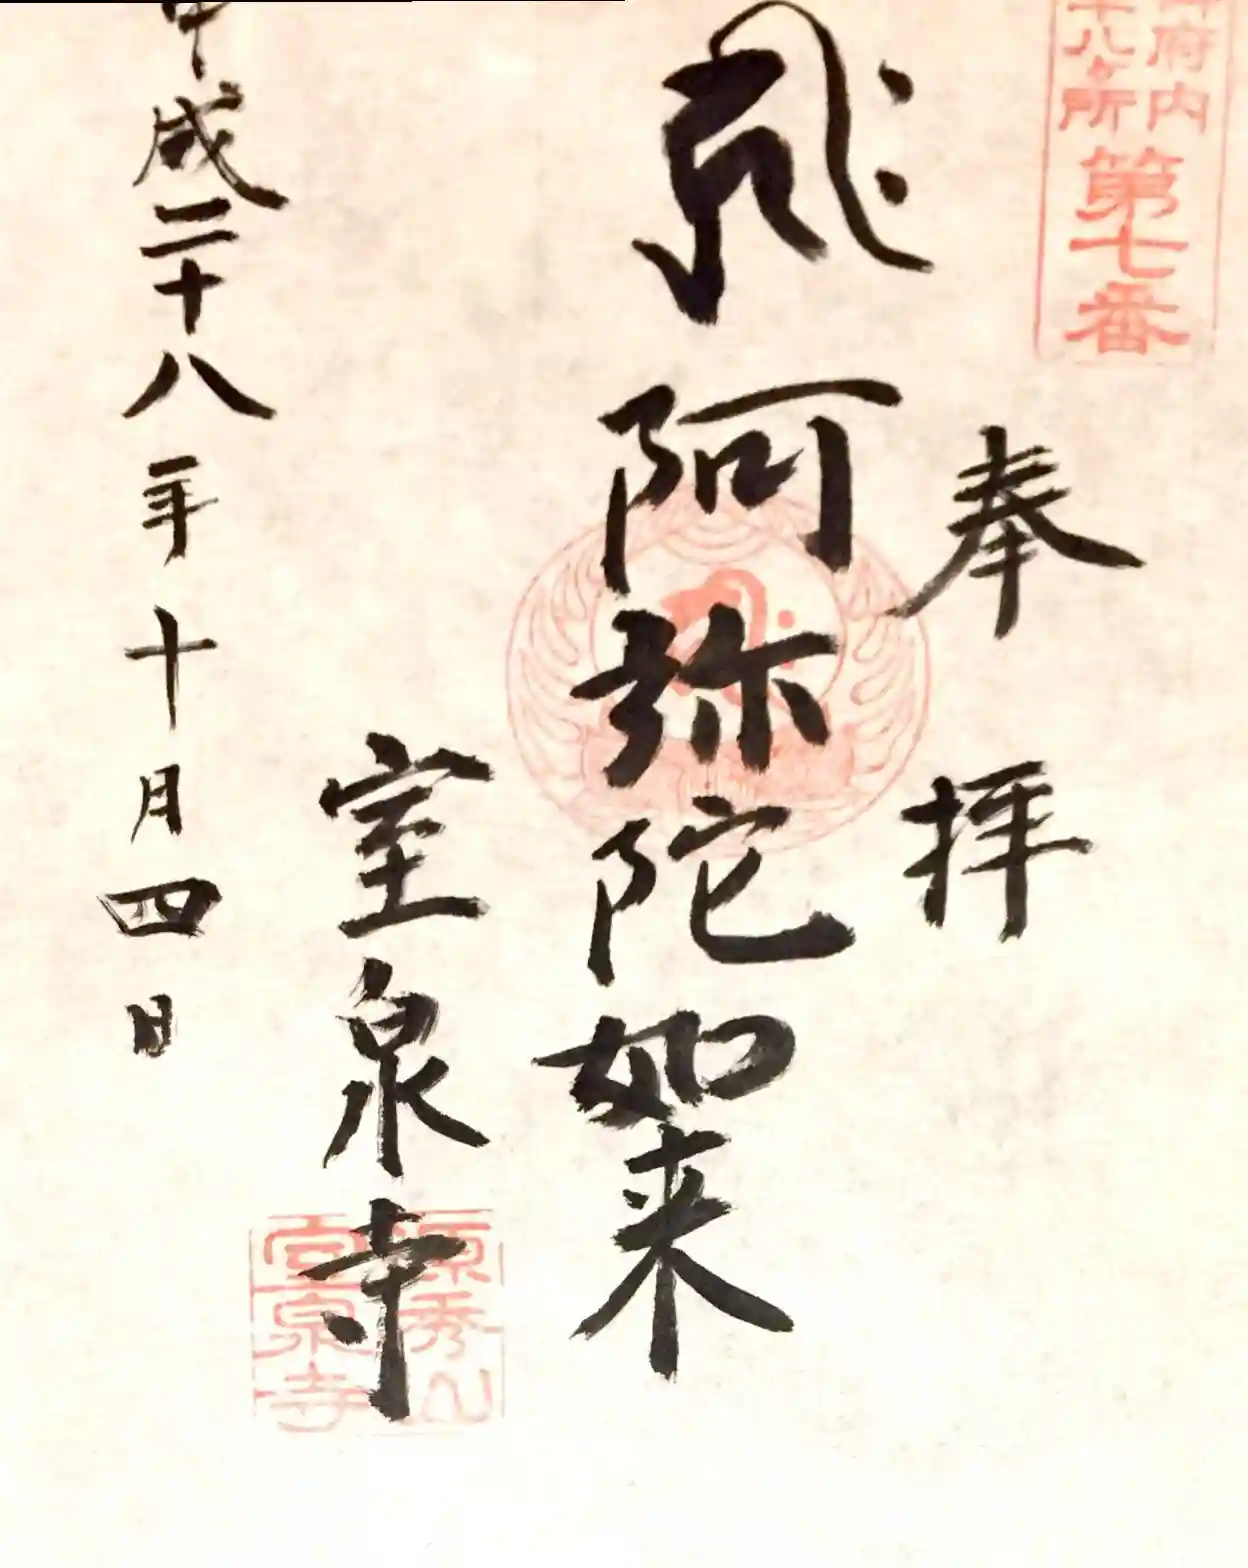 府内
十八ヶ所
第七番
奉拝
阿弥陀如来
室泉寺
源秀山
室泉寺
平成二十八年十月四日